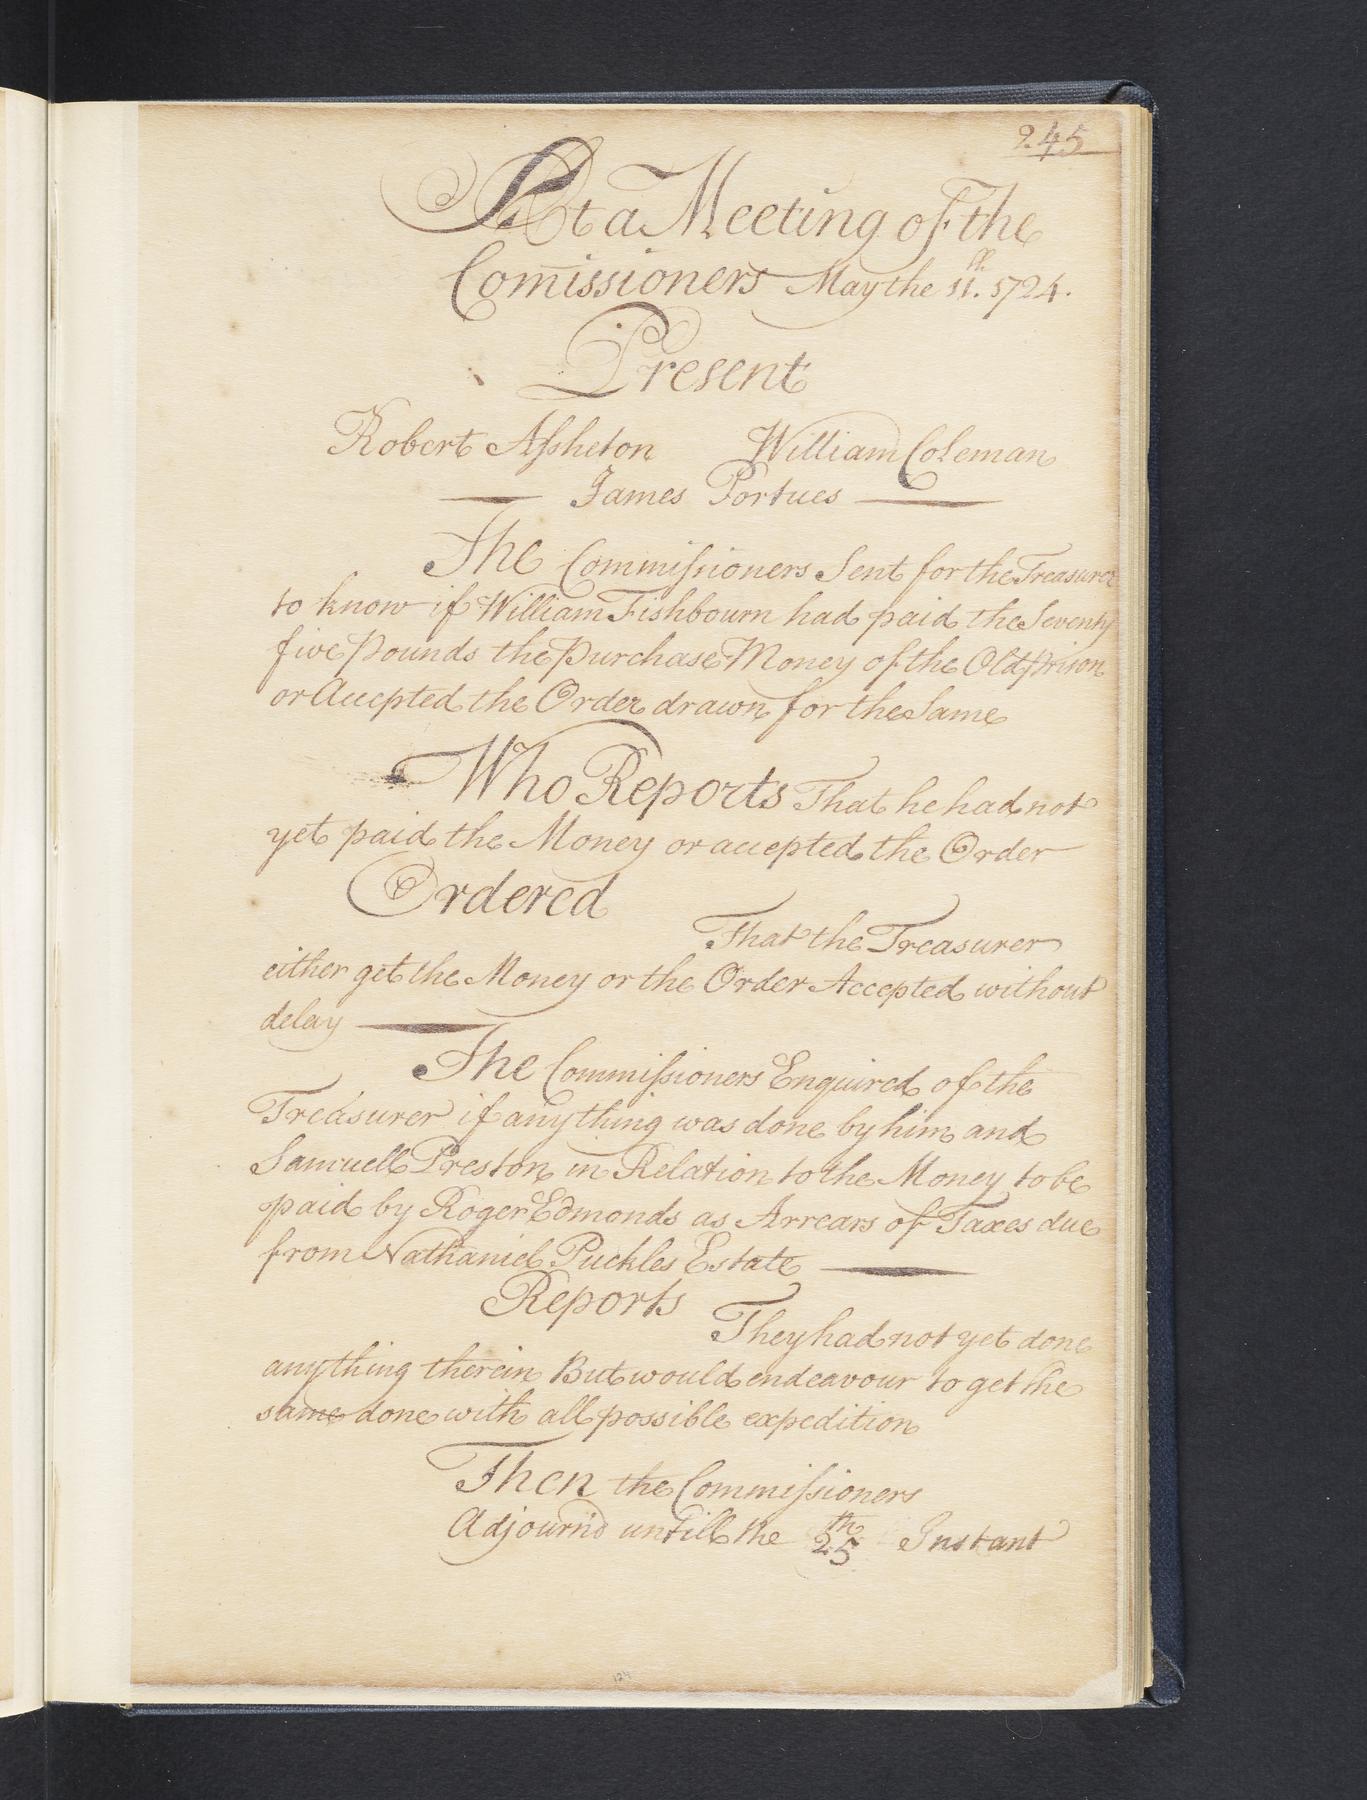 245
At a Meeting of The
Comissioners May the 11.th 1724.
Present
Robert Assheton William Coleman
James Portues
The Commissioners Sent for the Treasurer
to know if William Fishbourn had paid the Seventy
five Pounds the Purchase Money of the Old Prison
or Accepted the Order drawn for the Same
Who Reports That he had not
yet paid the Money or accepted the Order
Ordered
That the Treasurer
either get the Money or the Order Accepted without
delay
The Commissioners Enquired of the
Treasurer if any thing was done by him and
Samuell Preston in Relation to the Money to be
paid by Roger Edmonds as Arrears of Taxes due
from Nathaniel Puckles Estate
Reports
They had not yet done
any thing therein But would endeavour to get the
same done with all possible expedition
Then the Commissioners
Adjourn'd untill the 25th Instant
124